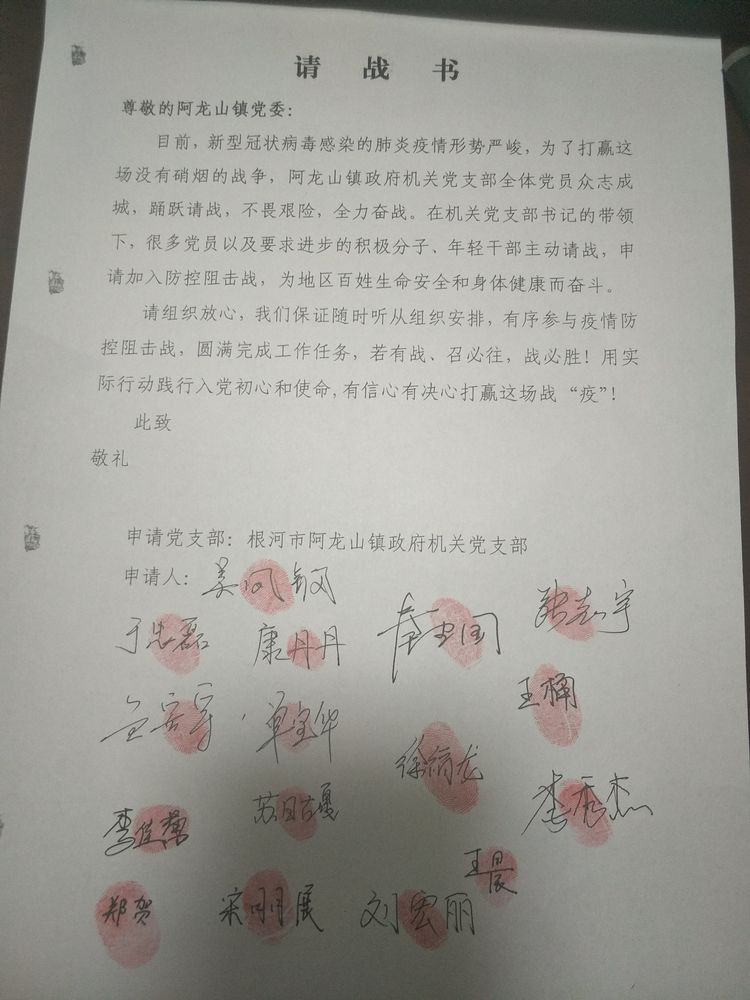 请战书
尊敬的阿龙山镇党委：
目前，新型冠状病毒感染的肺炎疫情形势严峻，为了打赢这
场没有硝烟的战争，阿龙山镇政府机关党支部全体党员众志成
城，踊跃请战，不畏艰险，全力奋战。在机关党支部书记的带领
下，很多党员以及要求进步的积极分子、年轻干部主动请战，申
请加入防控阻击战，为地区百姓生命安全和身体健康而奋斗。
请组织放心，我们保证随时听从组织安排，有序参与疫情防
控阻击战，圆满完成工作任务，若有战、召必往，战必胜！用实
际行动践行入党初心和使命,有信心有决心打赢这场战“疫”！
此致
敬礼
申请党支部：根河市阿龙山镇政府机关党支部
申请人：
张志宇
于忠磊 康丹丹
王楠
单宝华
苏日古嘎 李秀杰
王晨
郑贺 宋明展 刘宏丽